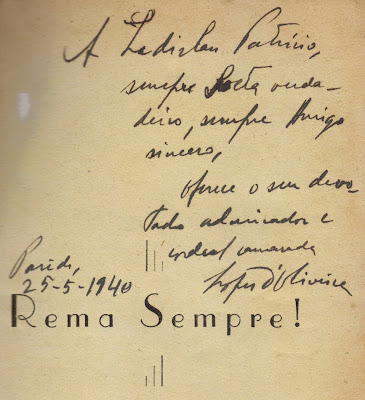 A Ladislau Patrício,
sempre Poeta verda-
deiro, sempre Amigo
sincero,
oferece o seu devo-
tado admirador e
cordeal camarada
Lopes d'Oliveira
Parêde,
25-5-1940
Rema Sempre!